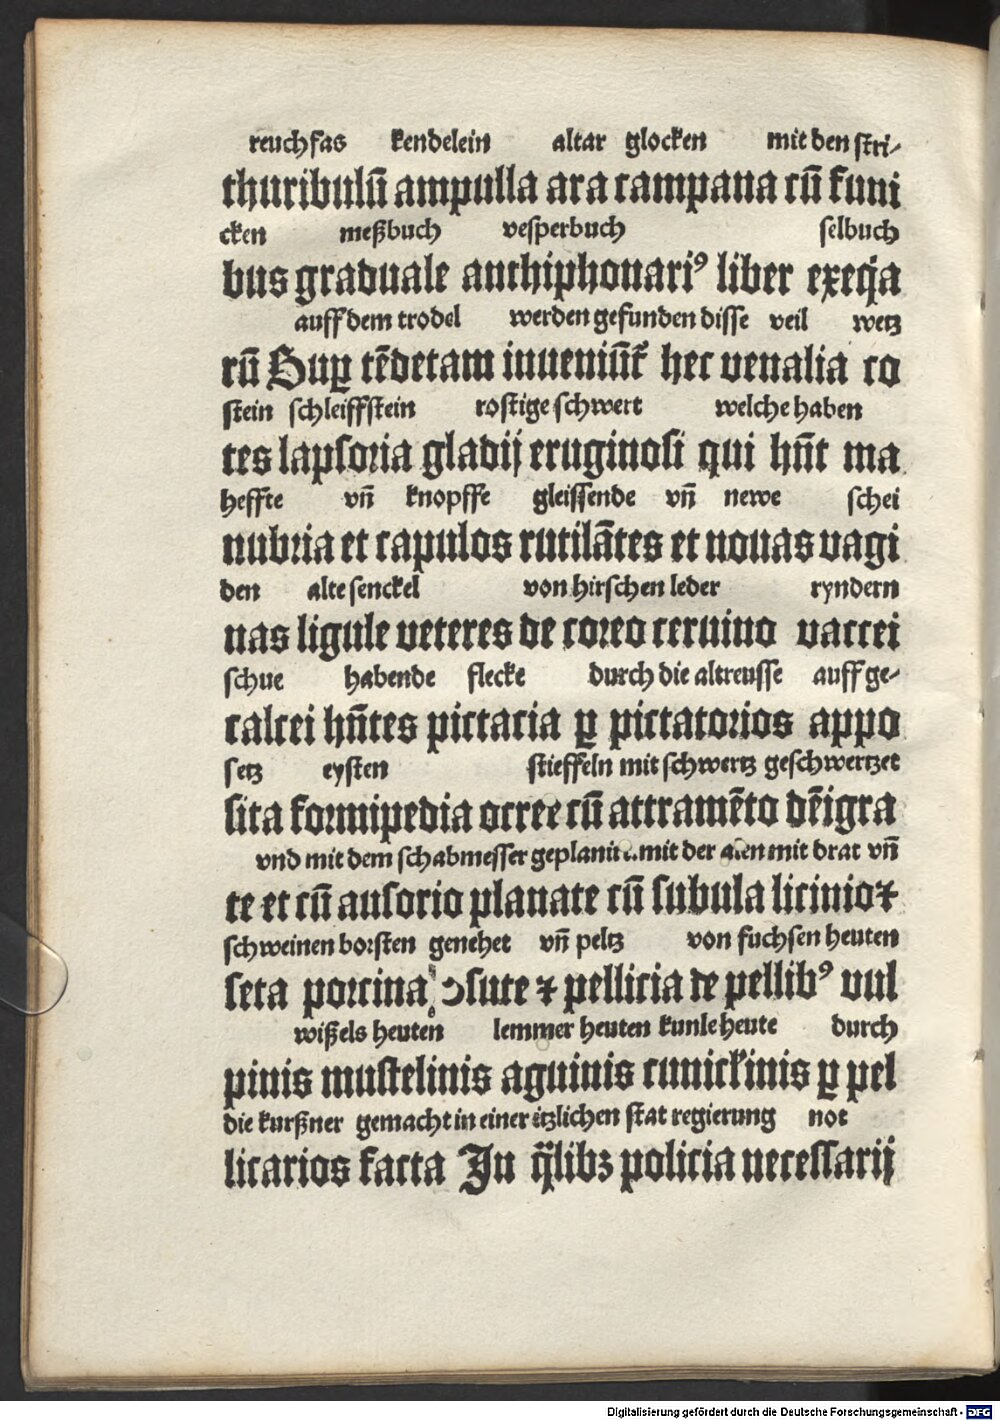 reuchfas kendelein altar glocken mit den stri⸗
thuribulū ampulla ara campana cū funi
cken meßbuch vesperbuch selbuch
bus graduale anthiphonariꝰ liber exeq̄a
auff dem trodel werden gefunden disse veil wetz
rū Suꝑ tēdetam inueniūt᷑ hec venalia co
stein schleiffstein rostige schwert welche haben
tes lapsoꝛia gladij eruginosi qui hn̄t ma
heffte vn̄ knopffe gleissende vn̄ newe schei
nubꝛia et capulos rutilātes et nouas vagi
den alte senckel von hirschen leder ryndern
nas ligule veteres de coꝛeo ceruino vaccei
schue habende flecke durch die altreusse auff ge⸗
calcei hn̄tes pictacia ꝑ pictatoꝛios appo
setz eysten stieffeln mit schwertz geschwertzet
sita foꝛmipedia ocree cū attramēto dēigra
vnd mit dem schabmesser geplanit mit der alen mit drat vn̄
te et cū ausorio planate cū subula licinio ⁊
schweinen boꝛsten genehet vn̄ peltz von fuchsen heuten
seta poꝛcina ↄsute ⁊ pellicia de pellibꝰ vul
wißels heuten lemmer heuten kunle heute durch
pinis mustelinis agninis cunickinis ꝑ pel
die kurßner gemacht in einer itzlichen stat regierung not
licarios facta In q̄libꝫ policia necessarij
Digitalisierung gefördert durch die Deutsche Forschungsgemeinschaft - DFG